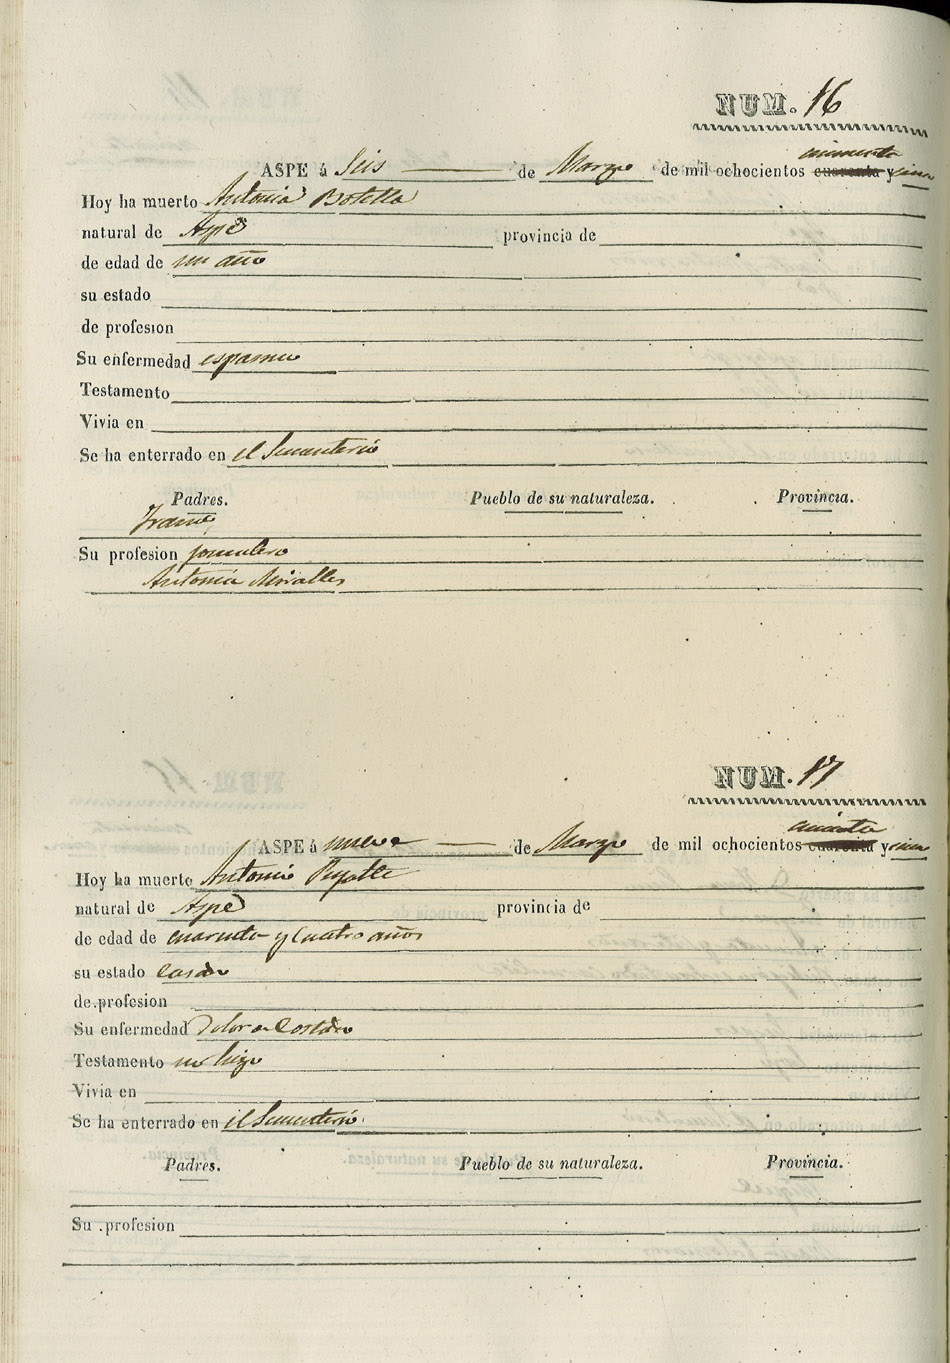 NUM. 16
cincuenta
ASPE á Seis de Marzo de mil ochocientos cuarenta y cinco
Hoy ha muerto Antonia Botella
natural de Aspe provincia de
de edad de un año
su estado
de profesion
Su enfermedad espasmo
Testamento
Vivia en
Se ha enterrado en el Sementerio
Padres. Pueblo de su naturaleza. Provincia.
Su profesion jornalero
Antonia Miralles
NUM. 17
cincuenta
ASPE á nueve de Marzo de mil ochocientos cuarenta y cinco
Hoy ha muerto Antonio
natural de Aspe provincia de
de edad de cuarenta y cuatro años
su estado Casado
de profesion
Su enfermedad Dolor de Costado
Testamento no hizo
Vivia en
Se ha enterrado en el Sementerio
Padres. Pueblo de su naturaleza. Provincia.
Su profesion